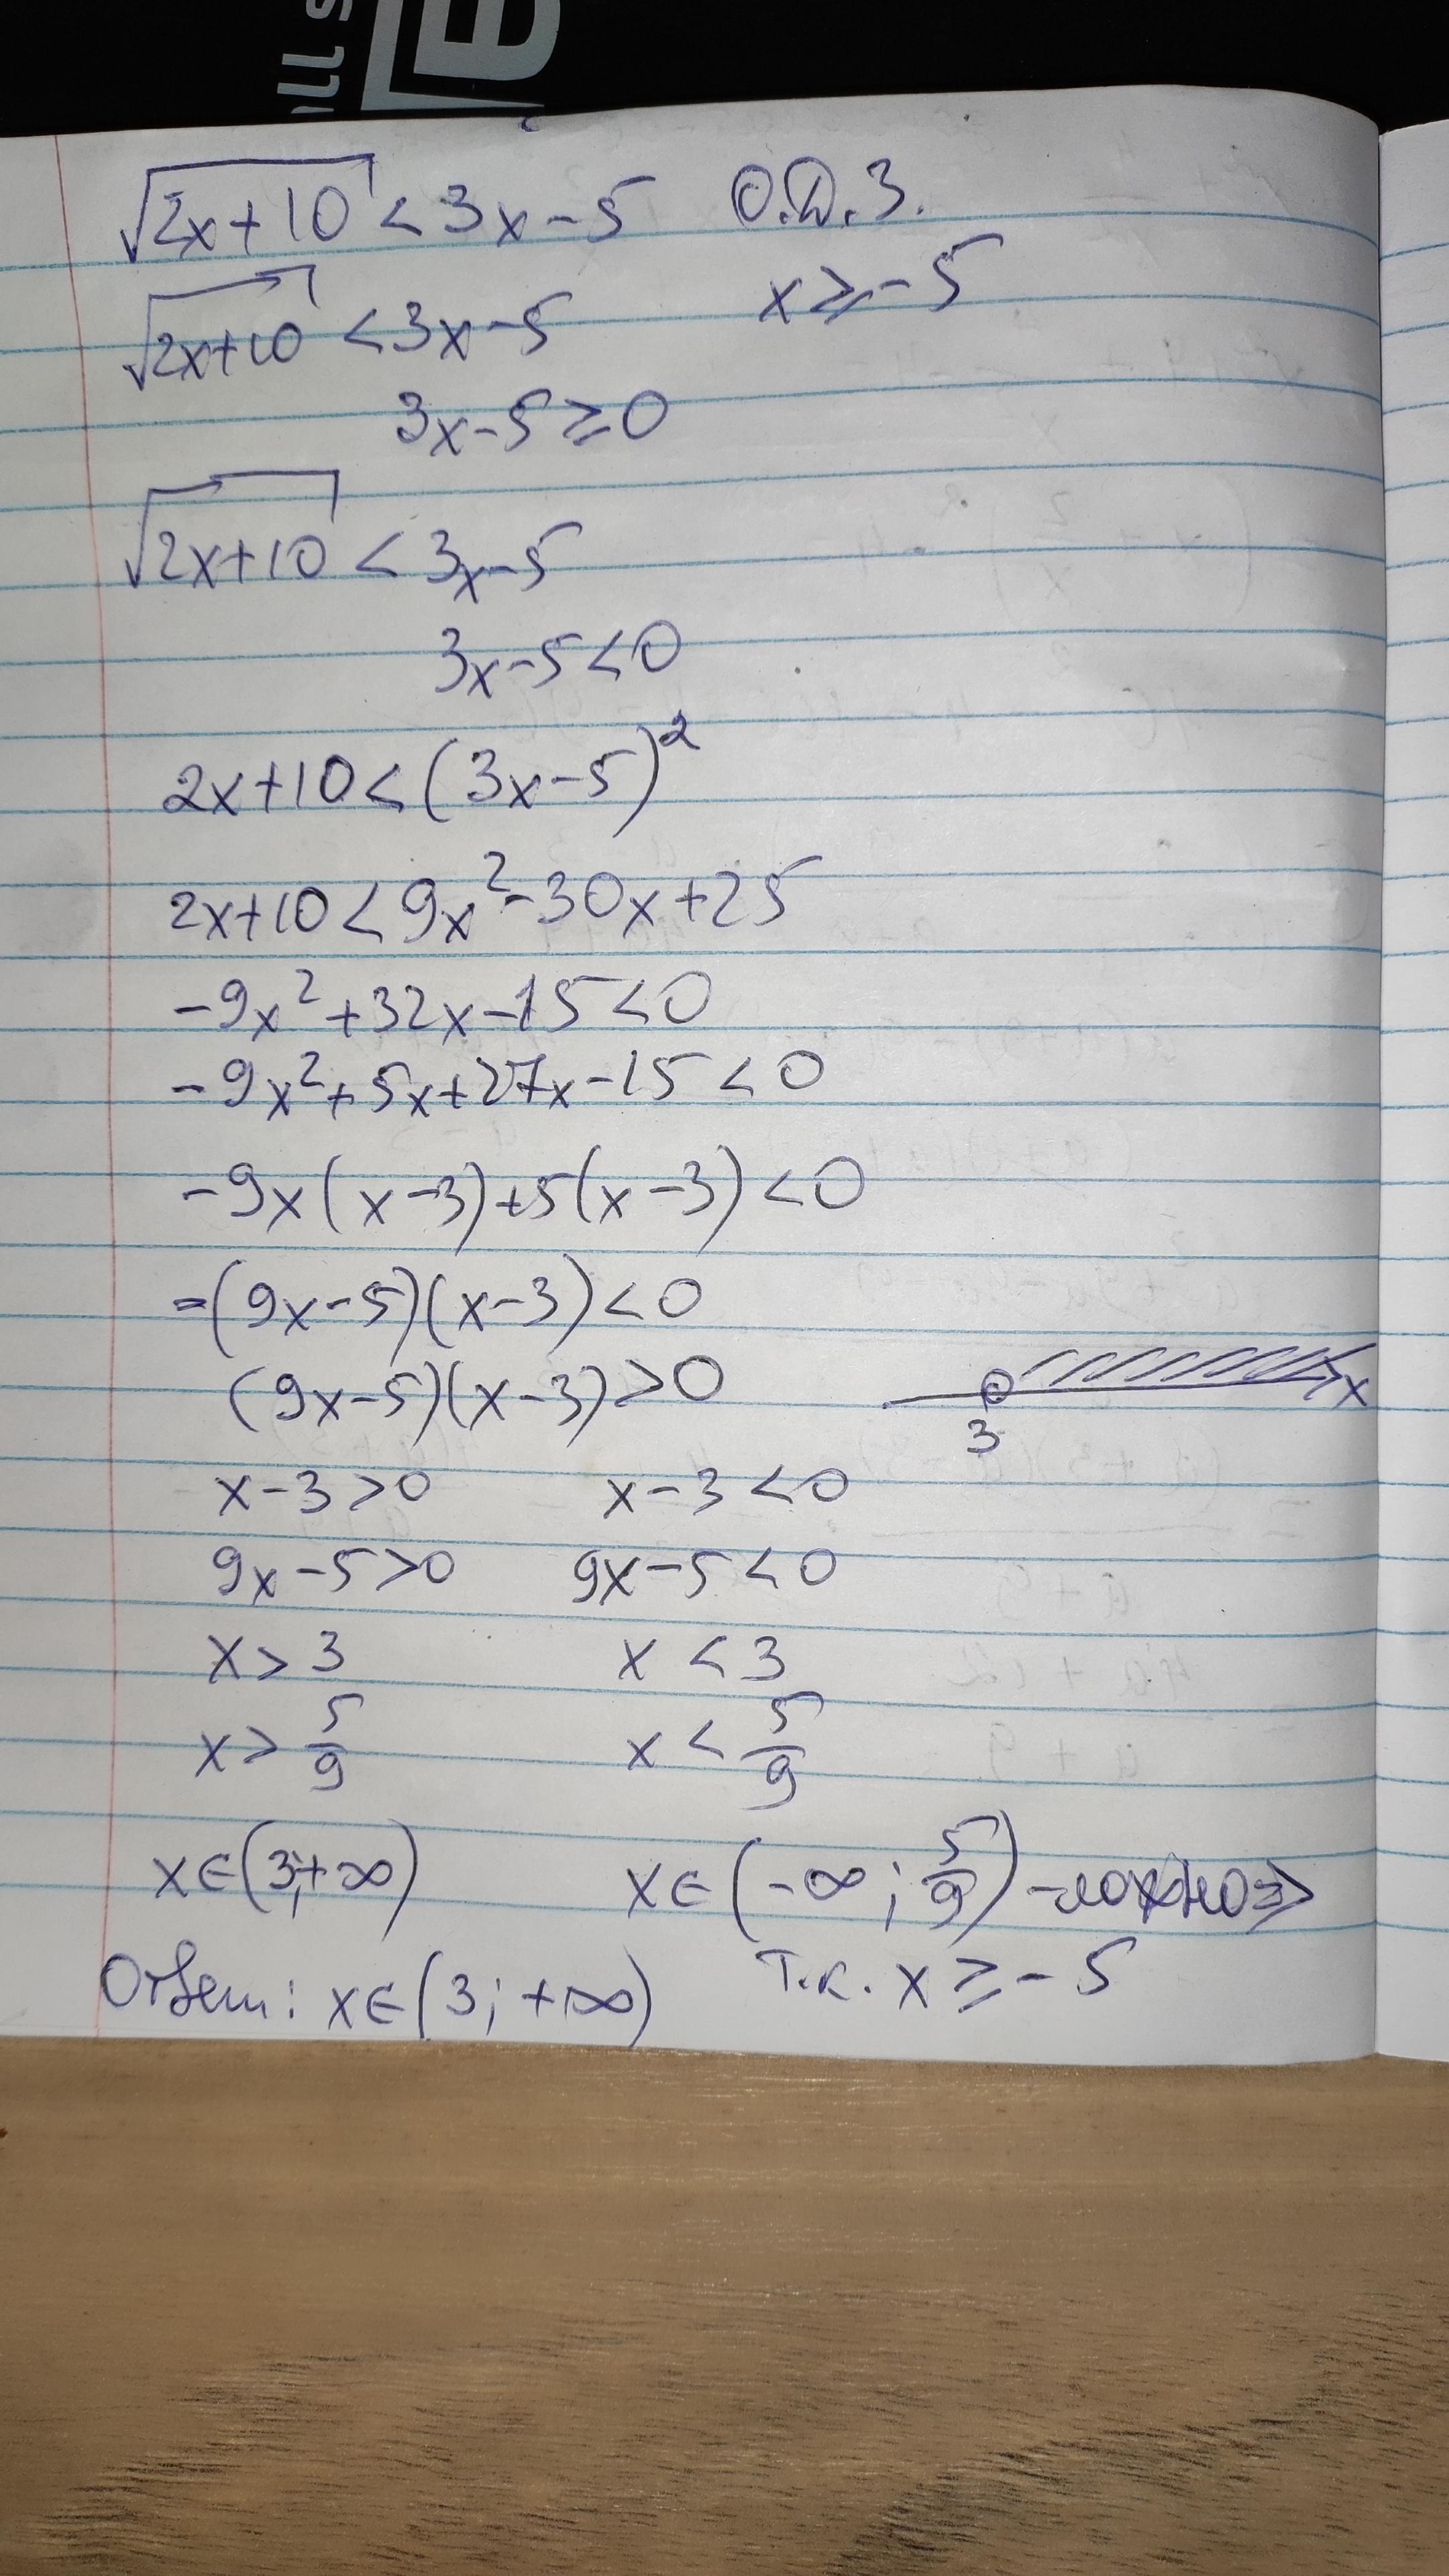 √2x+10 < 3x-5 О.Д.З.
√2x+10 < 3x-5 x ≥ -5
3x-5 ≥ 0
√2x+10 < 3x-5
3x-5 < 0
2x+10 < (3x-5)²
2x+10 < 9x²-30x+25
-9x²+32x-15 < 0
-9x²+5x+27x-15 < 0
-9x(x-3)+5(x-3) < 0
-(9x-5)(x-3) < 0
(9x-5)(x-3) > 0
x
3
x-3 > 0 x-3 < 0
9x-5 > 0 9x-5 < 0
x > 3 x < 3
x > 5/9 x < 5/9
x ∈ (3;+∞) x ∈ (-∞; 5/9) -
Ответ: x ∈ (3; +∞) т.к. x ≥ -5